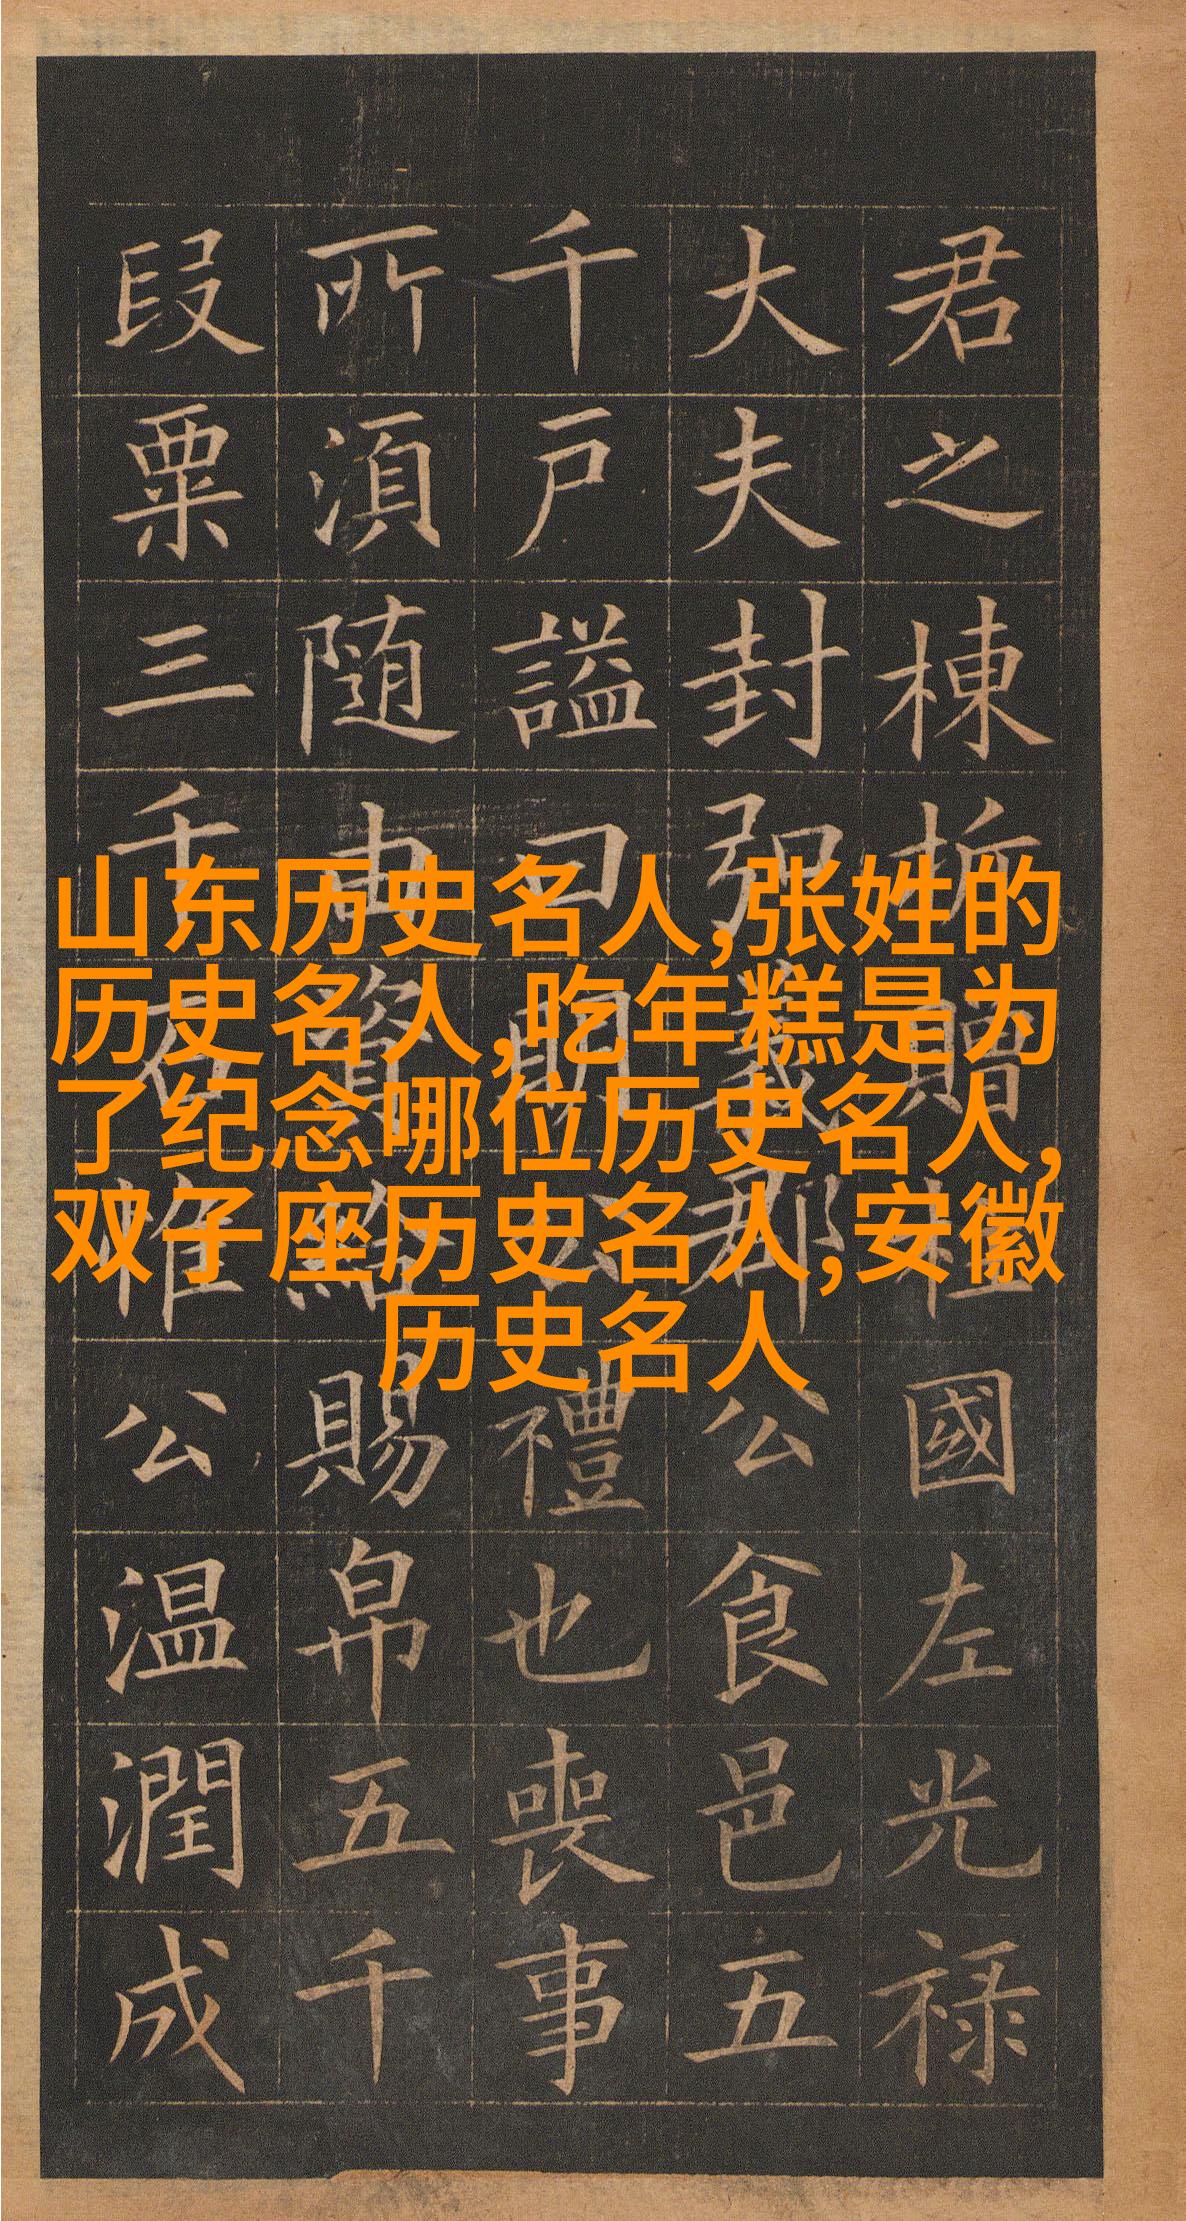 君之棟折贈柱國左光禄
大夫封弘義郡公食邑五
千戸謚曰明公禮也喪事
所湏随由資給賜帛五千
段粟三千石惟公温潤成
山东历史名人,张姓的
历史名人,吃年糕是为
了纪念哪位历史名人,
双子座历史名人,安徽
历史名人